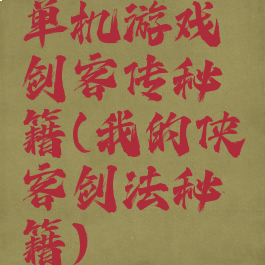 单机游戏
剑客传秘
籍(我的侠
客剑法秘
籍)